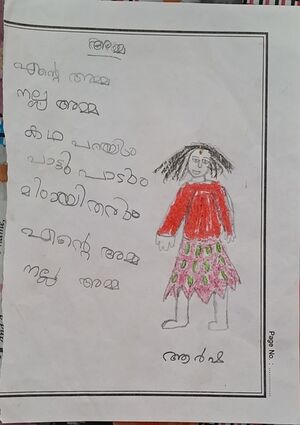 അമ്മ
എന്റെ അമ്മ
നല്ല അമ്മ
കഥ പറയും
പാട്ടു പാടും
മിഠായിതരും
എന്റെ അമ്മ
നല്ല അമ്മ
ആർഷ
Page No. :